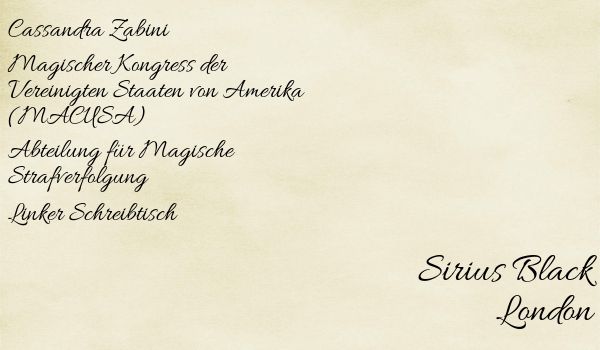 Cassandra Zabini
Magischer Kongress der
Vereinigten Staaten von Amerika
(MACUSA)
Abteilung für Magische
Strafverfolgung
Linker Schreibtisch
Sirius Black
London